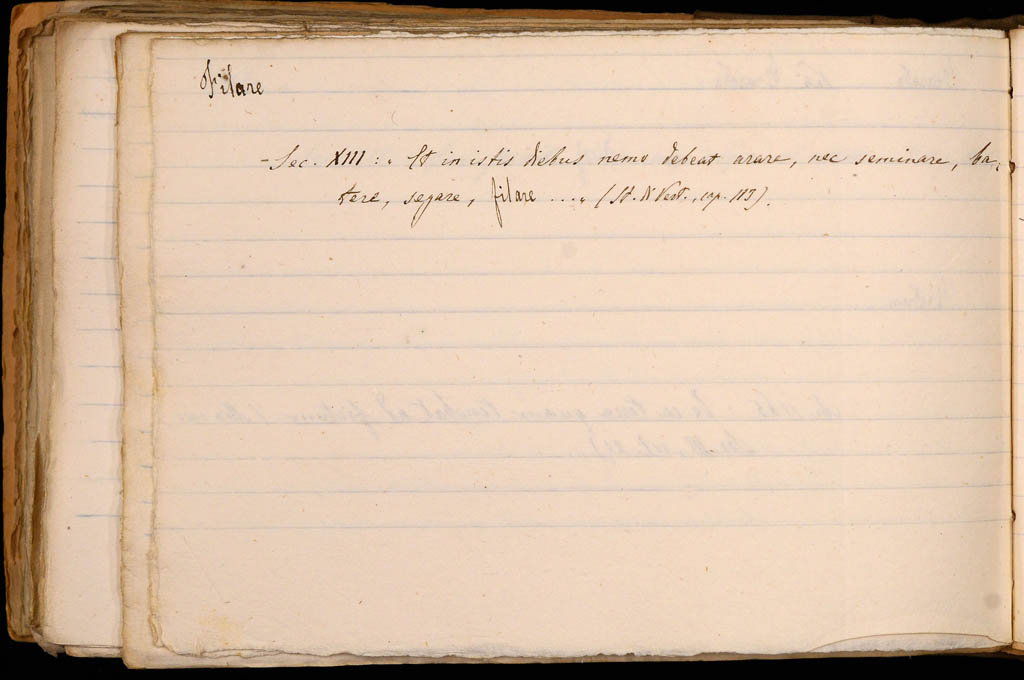 Filare
- Sec. XIII : „ Et in istis diebus nemo debeat arare, nec seminare, ba-
tere, segare, filare .... „ (St. N Vert., cap. 113).